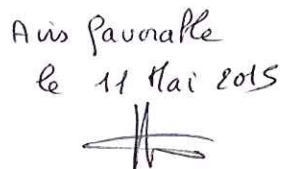 Avis favorable
le 11 Mai 2015